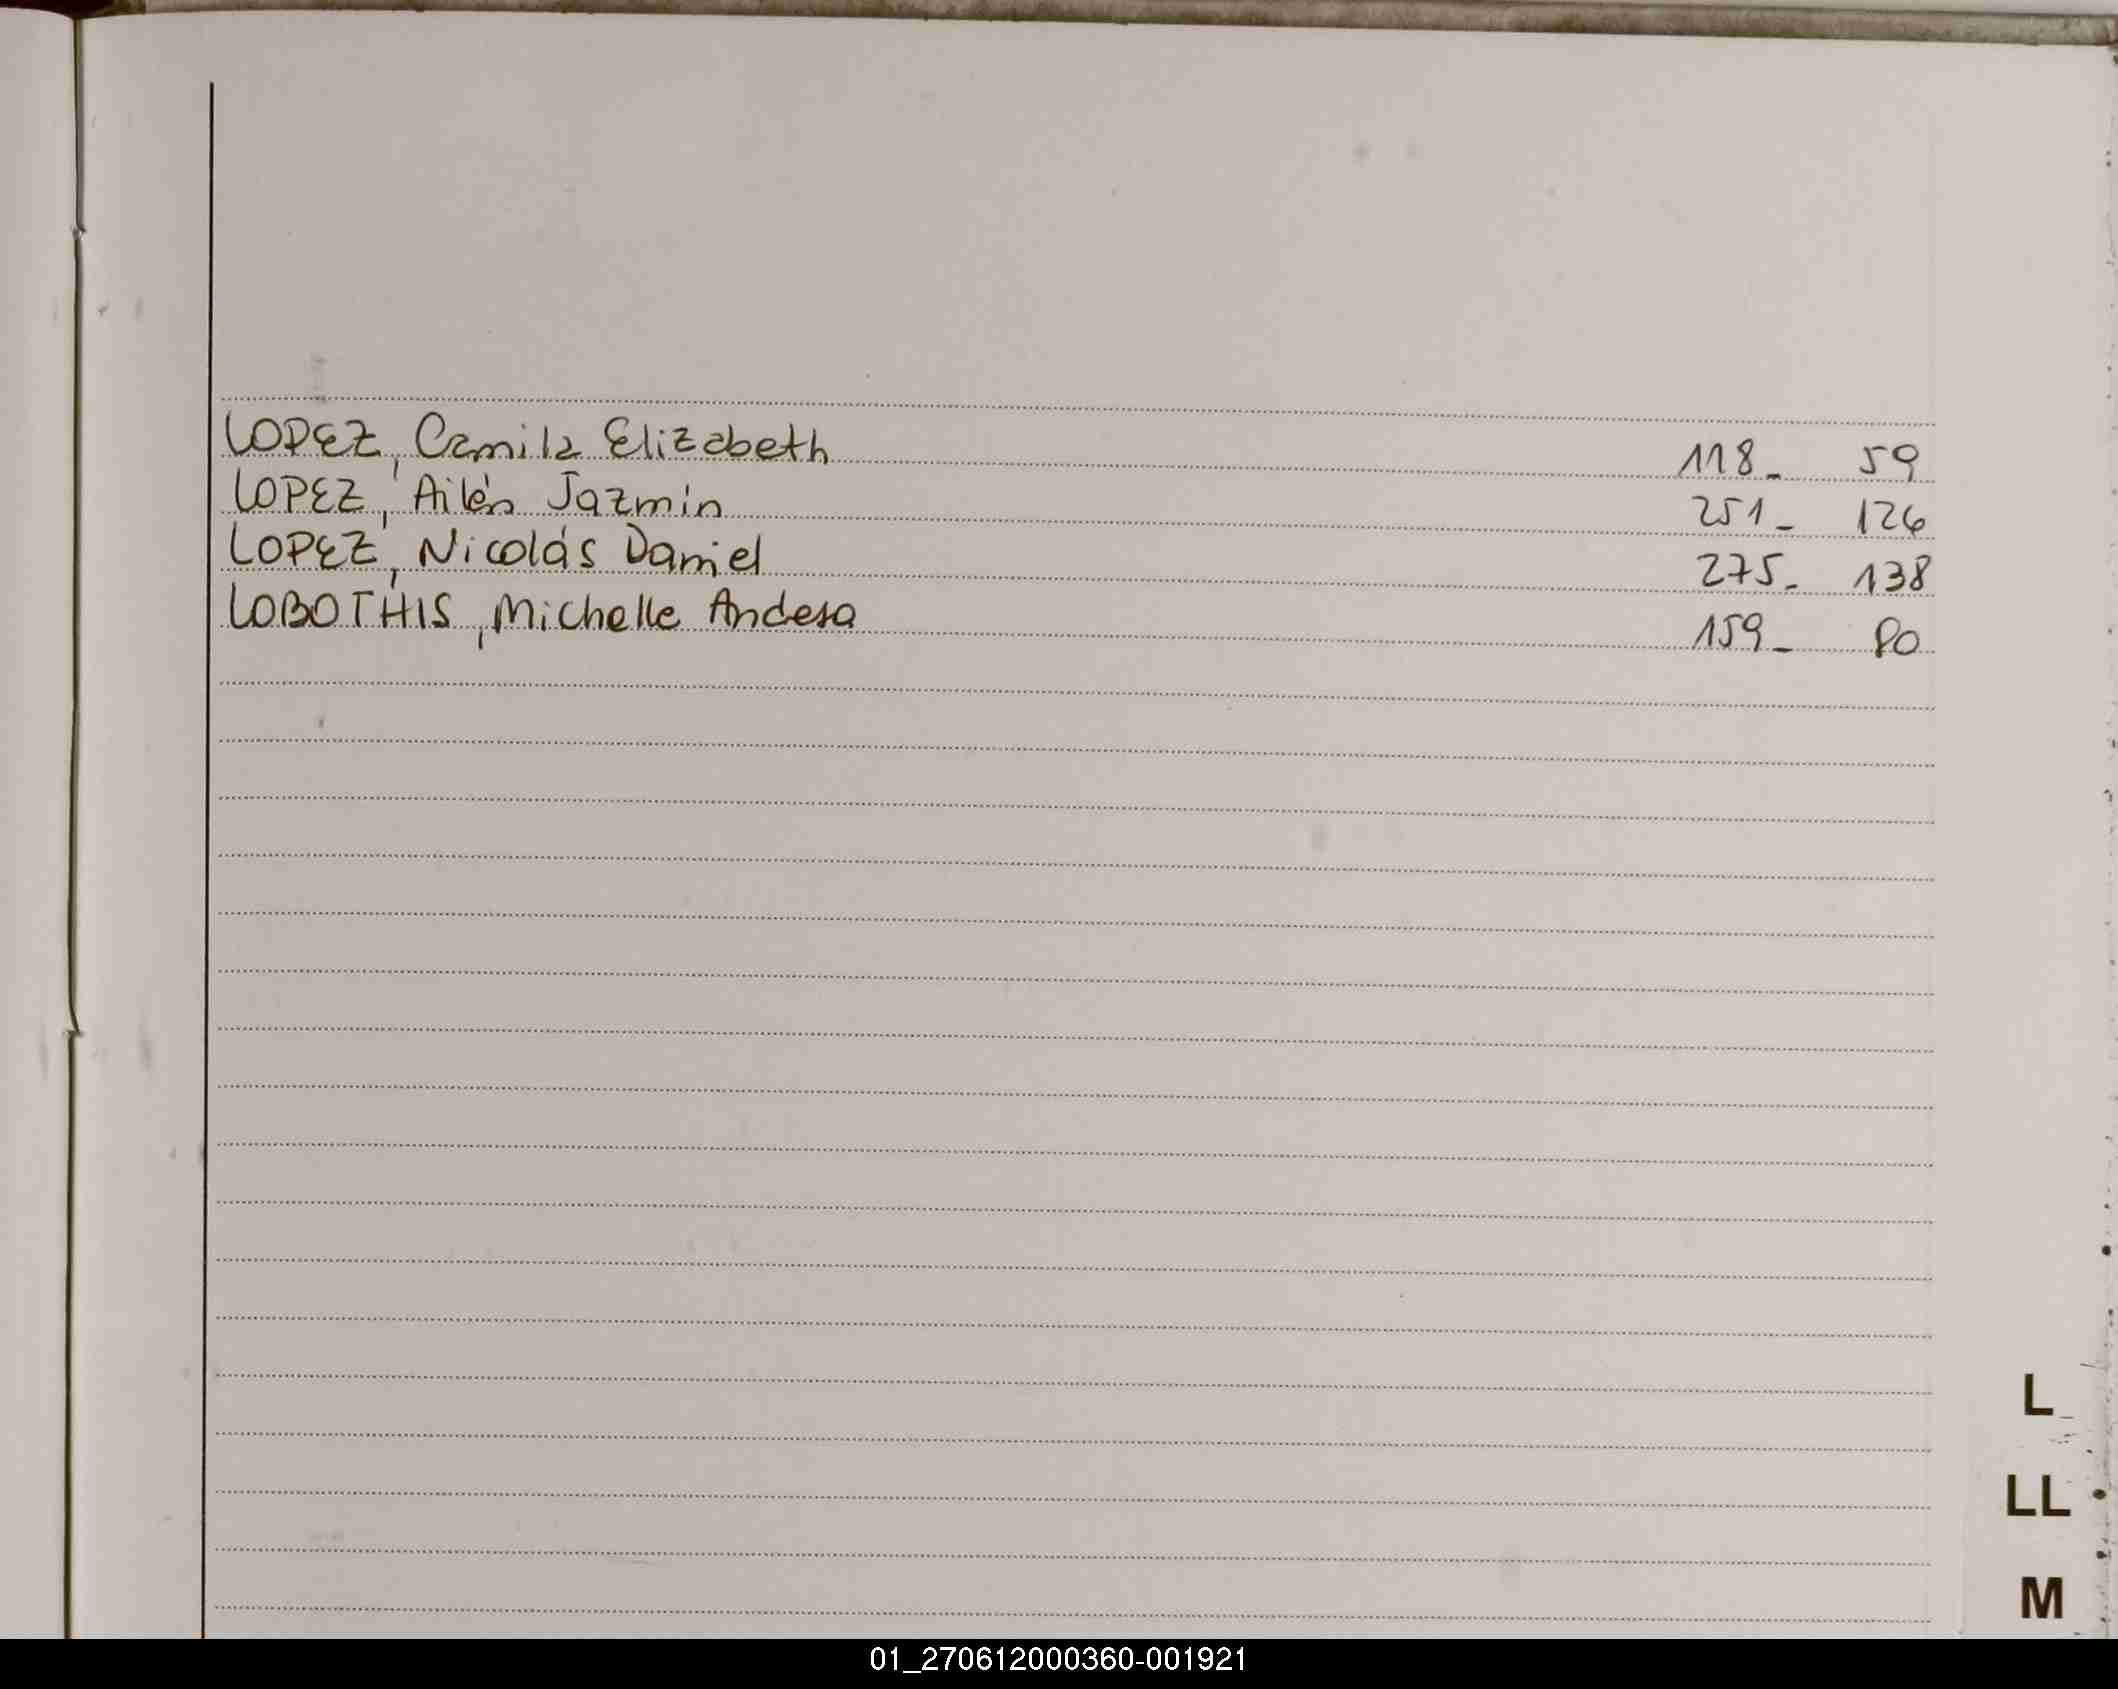 LOPEZ, Camila Elizabeth 118_ 59
LOPEZ, Ailén Jazmín 251_ 126
LOPEZ, Nicolás Daniel 275_ 138
LOBOTHIS, Michelle Andesa 159_ 80
L
LL
M
01_270612000360-001921